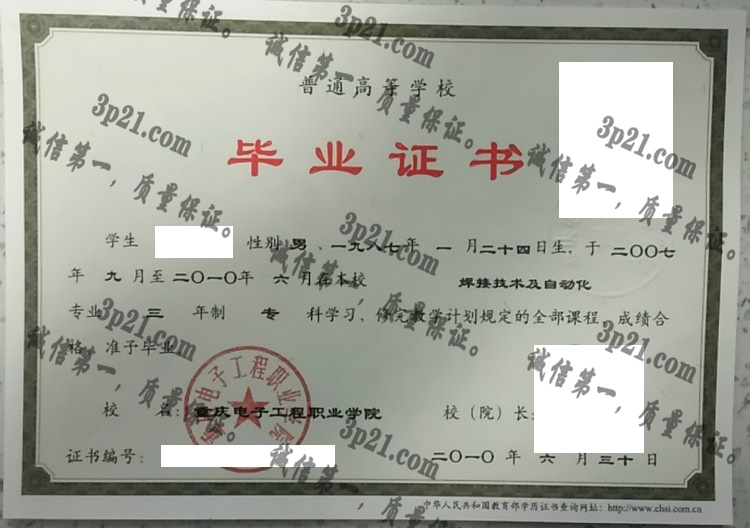 普通高等学校
毕业证书
学生 性别 男 、一九八七年 一 月二十四日生，于 二〇〇七
年 九 月至二〇一〇年 六 月在本校 焊接技术及自动化
专业 三 年制 专 科学习，修完教学计划规定的全部课程，成绩合
格，准予毕业
校 名：重庆电子工程职业学院 校（院）长：
证书编号： 二〇一〇 年 六 月三十日
中华人民共和国教育部学历证书查询网址：http://www.chsi.com.cn
重庆电子工程职业学院
3p21.com
诚信第一，质量保证。
3p21.com
诚信第一，质量保证。
3p21.com
诚信第一，质量保证。
3p21.com
诚信第一，质量保证。
3p21.com
诚信第一，质量保证。
3p21.com
诚信第一，质量保证。
3p21.com
诚信第一，质量保证。
质量保证。